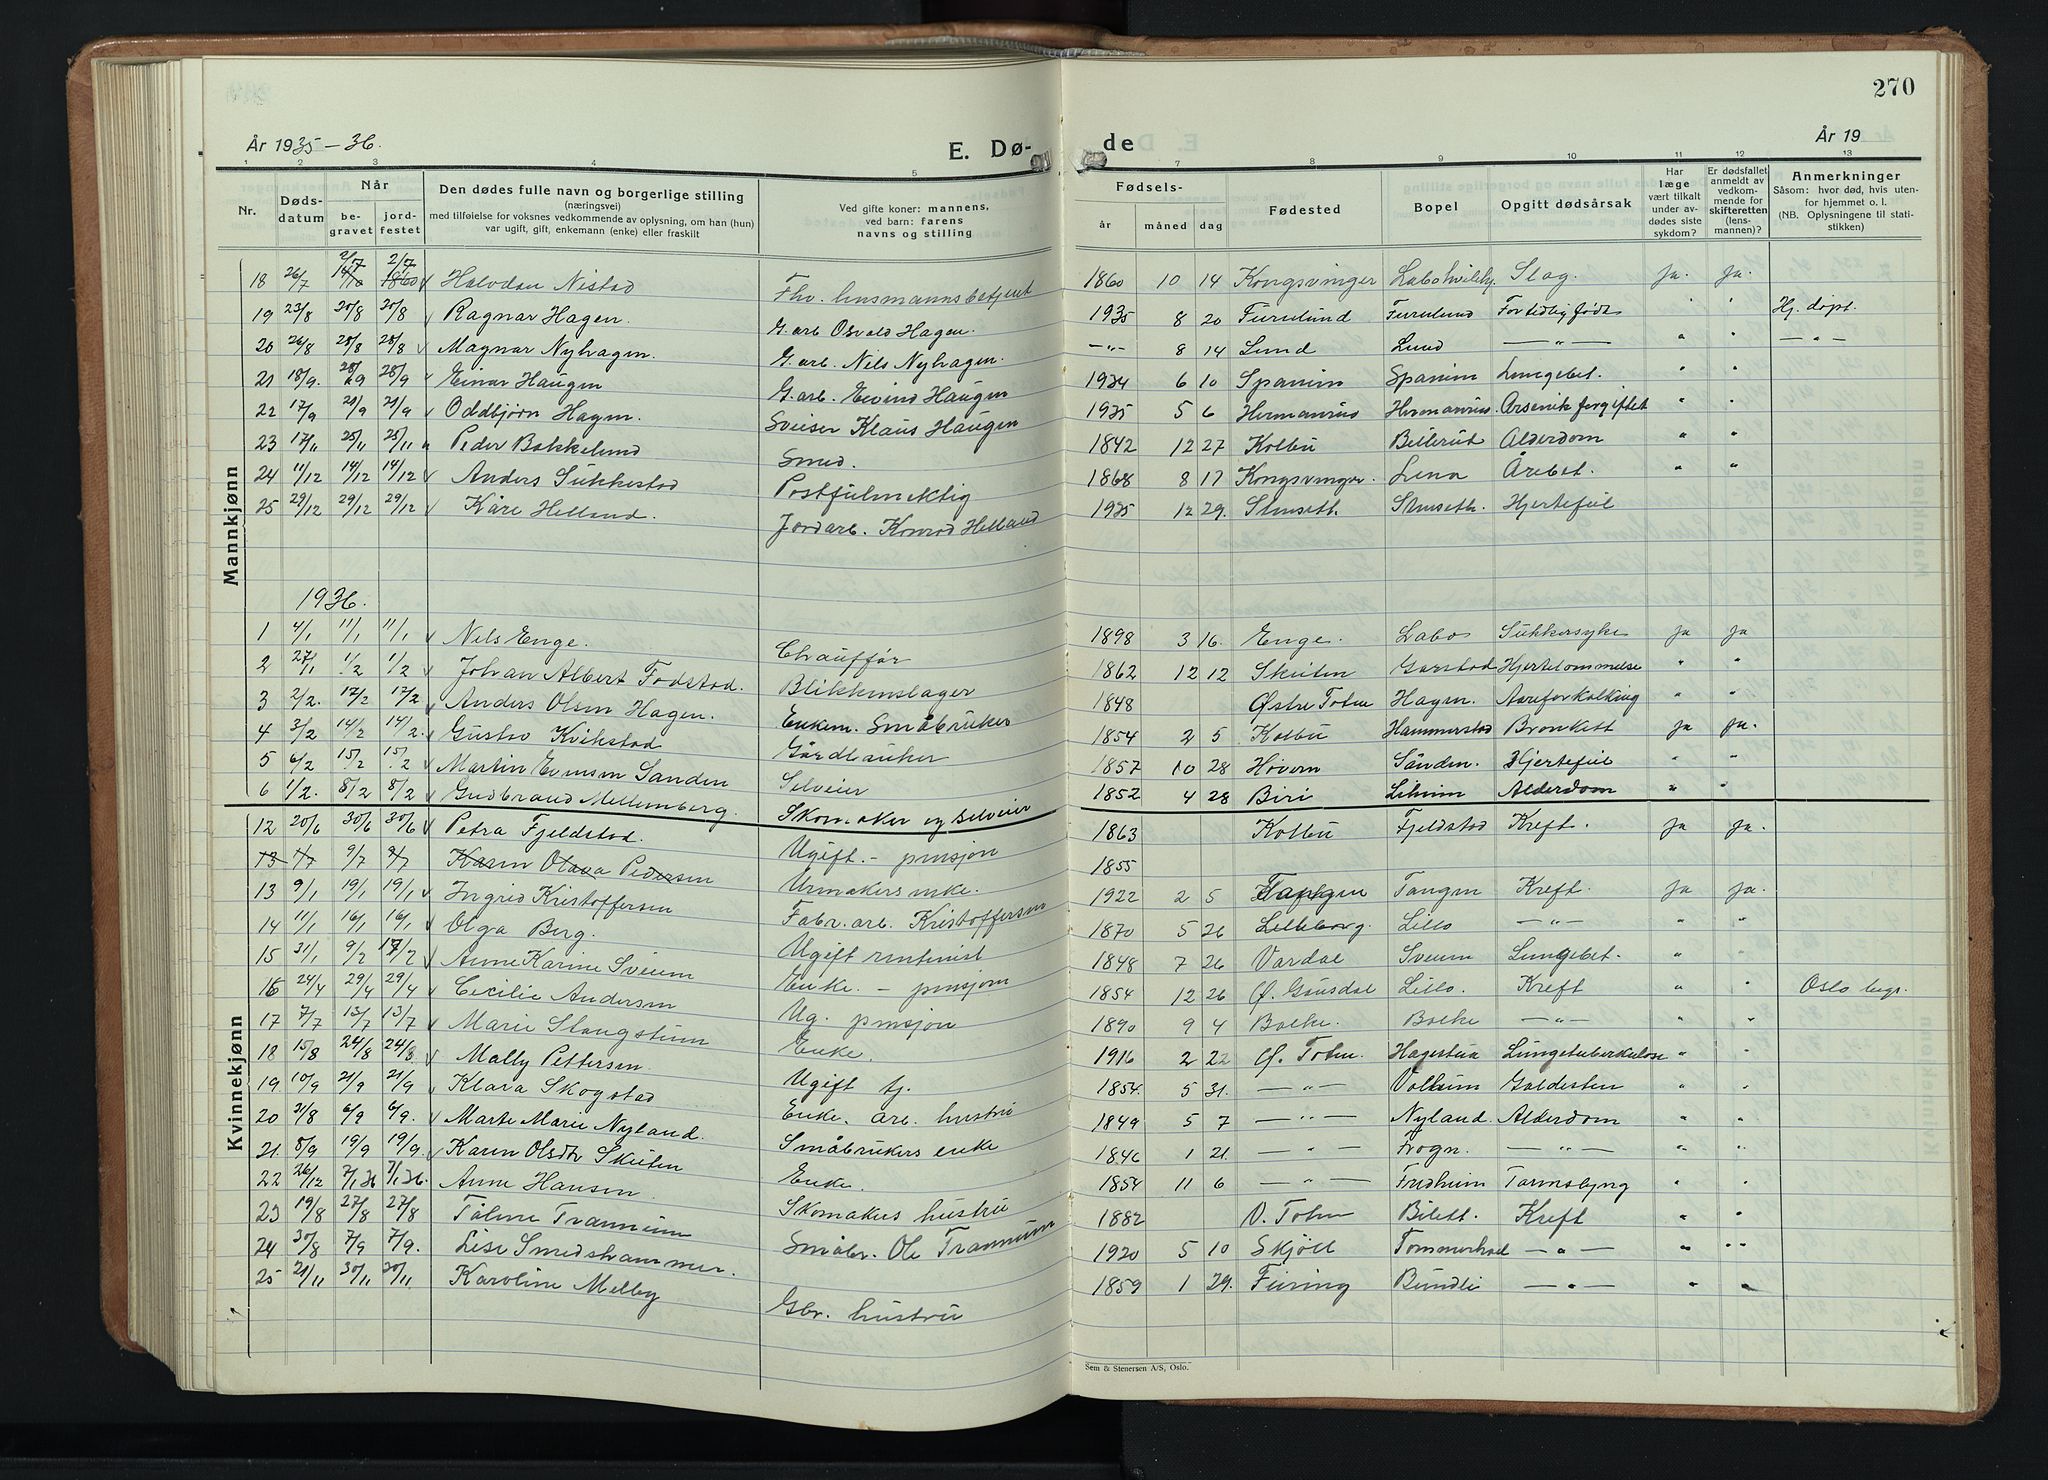 270
År 1935-36.
E. Dø-
de
År 19
1 2 3 4 5 7 8 9 10 11 12 13
Nr.
Døds-
datum
Når
be-
gravet
jord-
festet
Den dødes fulle navn og borgerlige stilling
(næringsvei)
med tilføielse for voksnes vedkommende av oplysning, om han (hun)
var ugift, gift, enkemann (enke) eller fraskilt
Ved gifte koner: mannens,
ved barn: farens
navns og stilling
Fødsels-
år måned dag
Fødested
Bopel
Opgitt dødsårsak
Har
læge
vært tilkalt
under av-
dødes siste
sykdom?
Er dødsfallet
anmeldt av
vedkom-
mende for
skifteretten
(lens-
mannen)?
Anmerkninger
Såsom: hvor død, hvis uten-
for hjemmet o. l.
(NB. Oplysningene til stati-
stikken)
Mannkjønn
18 26/7 2/7 2/7 Halvdan Nistad Fhv. lensmannsbetjent 1860 10 14 Kongsvinger Slag. ja. ja.
19 23/8 20/8 20/8 Ragnar Hagen. G. arb. Osvald Hagen. 1935 8 20 Furulund Furulund For tidlig født " " Hj. døpt.
20 26/8 28/8 28/8 Magnar Nyhagen. G. arb. Nils Nyhagen. -"- 8 14 Lund Lund -"- " " -"-
21 18/9. 28/9 28/9 Einar Haugen G. arb. Eivind Haugen 1934 6 10 Spanim Spanim Lungebet. " "
22 17/9 21/9 21/9 Oddbjørn Hagen. Sveiser Klaus Haugen 1935 5 6 Hermanrud Hermanrud. Arsenik forgiftet " "
23 17/11 25/11 25/11 Peder Bakkelund Smed. 1842 12 27 Kolbu Billerud Alderdom " "
24 11/12 14/12 14/12 Anders Sukkestad Postfulmektig 1868 8 17 Kongsvinger. Lena Årebet. " "
25 29/12 29/12 29/12 Kåre Helland. Jordarb. Konrad Helland 1935 12 29. Stenseth. Stenseth. Hjertefeil
1936.
1 4/1 11/1 11/1 Nils Enge. Chauffør 1898 3 16. Enge. Labo Sukkersyke ja ja
2 27/1 1/2 1/2 Johan Albert Fodstad. Blikkenslager 1862 12 12 Skiten Garstad Hjertelammelse " "
3 2/2. 17/2 17/2 Anders Olsen Hagen. Enkem. Småbruker 1848 Østre Toten Hagen. Aareforkalking " "
4 3/2 14/2 14/2. Gustav Kvikstad Gårdbruker 1854 2 5 Kolbu Hammerstad Bronkitt ja ja.
5 6/2 15/2 15/2 Martin Evensen Sanden Selveier 1857 10 28 Høvern Sanden. Hjertefeil " "
6 1/2. 8/2 8/2 Gudbrand Mellemberg. Skomaker og Selveier 1852 4 28 Biri Liheim Alderdom " "
Kvinnekjønn
12 20/6 30/6 30/6 Petra Fjeldstad. Ugift. - pensjon 1863 Kolbu Fjeldstad Kreft. ja ja.
13 1/7 9/7 9/7 Karen Olava Pedersen Urmakers enke. 1855
13 9/1 19/1 19/1 Ingrid Kristoffersen Fabr. arb. Kristoffersen 1922 2 5 Tangen Tangen Kreft. ja ja.
14 11/1 16/1 16/1 Olga Berg. Ugift rentenist 1870 5 26 Lilleborg. Lillo -"- " "
15 31/1 9/2 17/2 Anne Karine Sveum Enke. - pensjon 1848 7 26 Vardal Sveum Lungebet. " "
16 24/4 29/4 29/4 Cecilie Andersen Ug. pensjon 1854 12 26 Ø. Gausdal Lillo. Kreft " " Oslo begr.
17 7/7 13/7 13/7 Marie Slaugstuen Enke. 1890 9 4 Bolke. Bolke -"- " "
18 15/8 24/8 24/8 Mally Pettersen Ugift tj. 1916 2 22 Ø. Toten. Hagestua Lungetuberkulose " "
19. 10/9 21/9 21/9 Klara Skogstad Enke. arb. hustru 1854. 5 31. -"- Volheim Galdesten " "
20 31/8 6/9 6/9. Marte Marie Nyland. Småbrukers enke 1849 5 7 -"- Nyland. Alderdom " "
21. 8/9 19/9 19/9. Karen Olsdtr Skiten Enke. 1846 1 21. -"- Frogn. -"- " "
22 26/12 7/1 36 7/1 36. Anne Hansen. Skomakers hustru 1854 11 6 -"- Fredheim Tarmslyng " "
23 19/8 27/8 27/8 Taline Tranneim Småbr. Ole Tranneim 1882 V. Toten Bilett. Kreft " "
24 30/8 7/9 7/9. Lise Smedshammer. 1920 5 10 Skjøll Tommerhol -"- " "
25 21/11 30/11 30/11 Karoline Melby Gbr. hustru 1859 1 29. Feiring Bundli -"- " "
Sem & Stenersen A/S, Oslo.